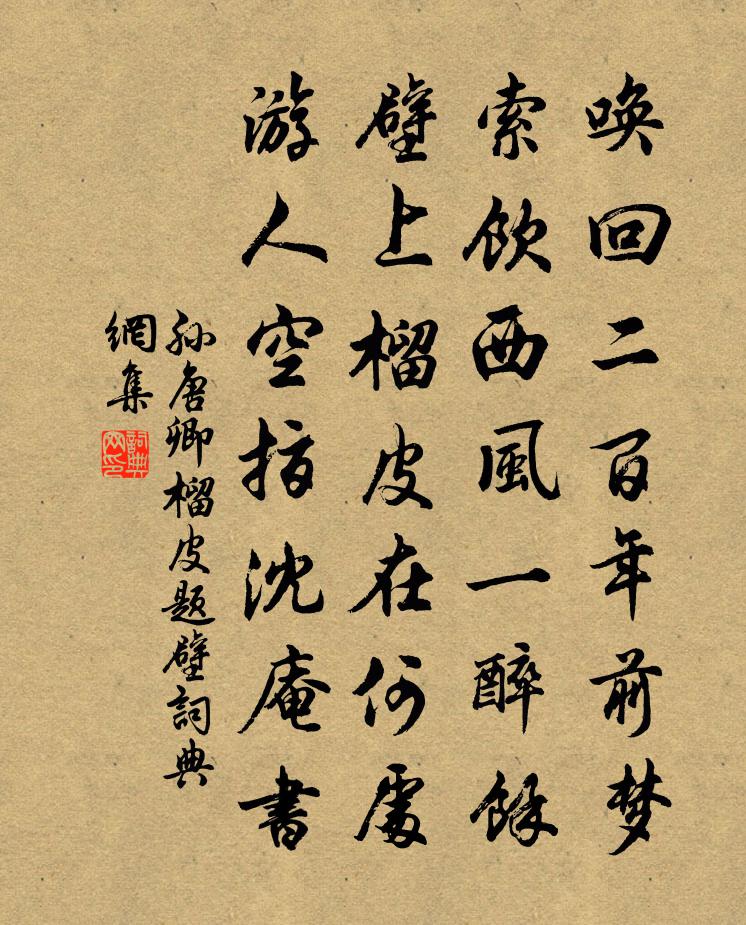 唤回二百年前梦
索饮西風一醉馀
壁上榴皮在何處
游人空指沈庵書
孙唐卿榴皮题壁詞典
網集
詞典
网印